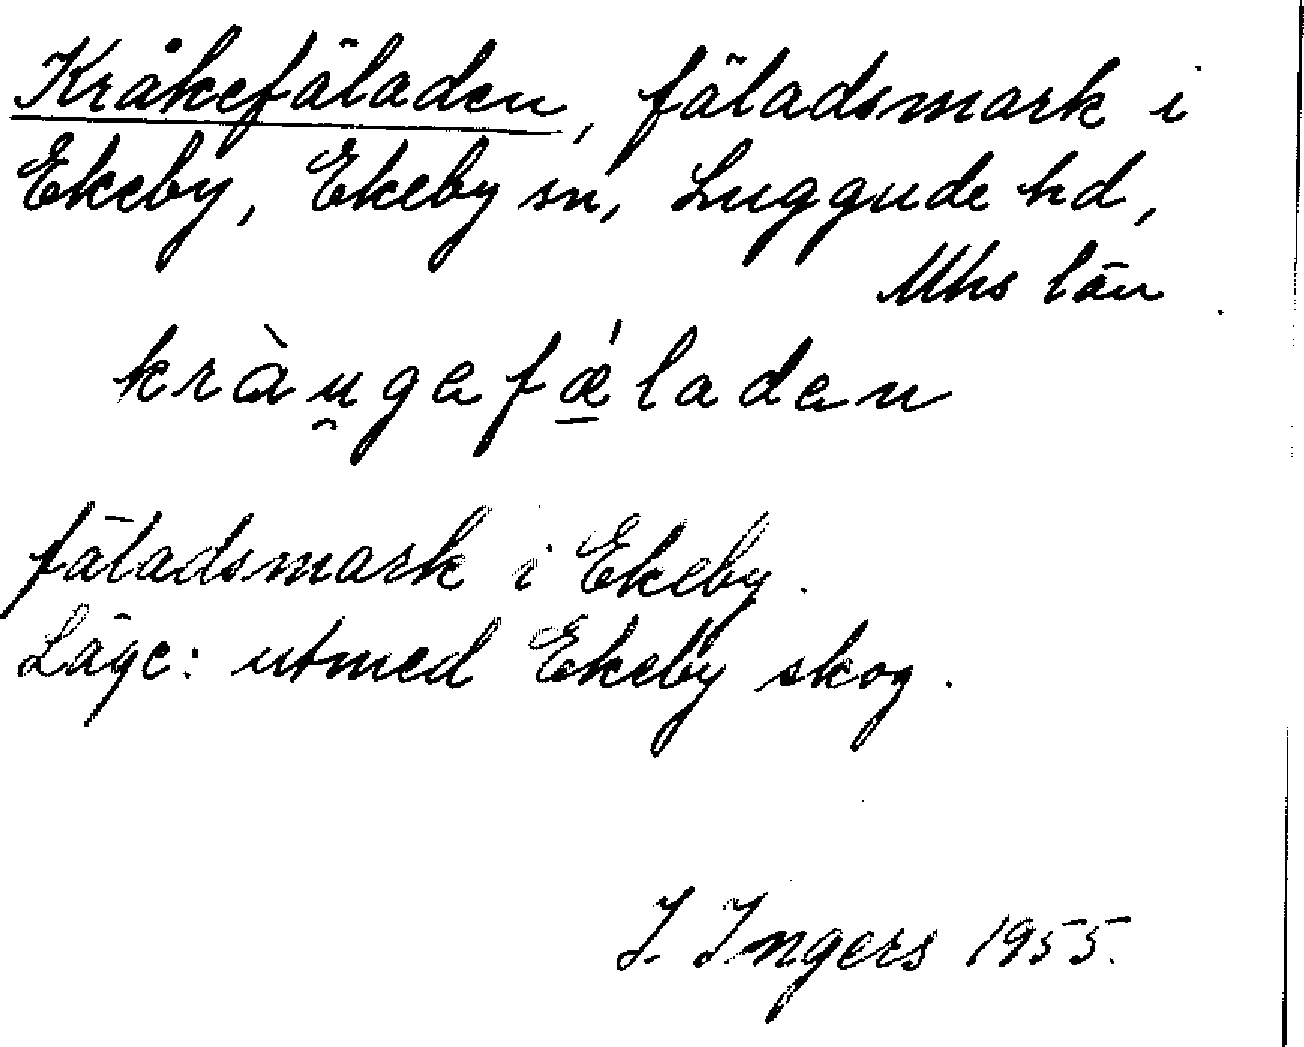 Kråkefäladen, fäladsmark i
Ekeby, Ekeby sn, Luggude hd,
Mhs län
kràu̯gefǽladen
fäladsmark i Ekeby.
Läge: utmed Ekeby skog.
I. Ingers 1955.